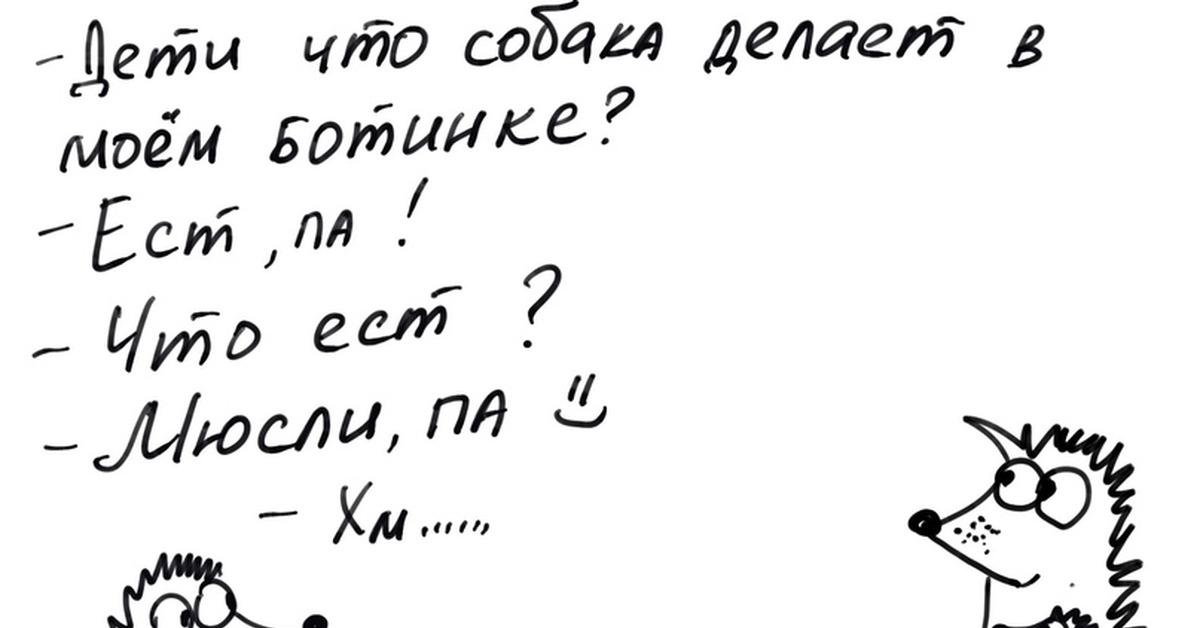 - Дети что собака делает в
моём ботинке?
- Ест, па!
- Что ест?
- Мюсли, па
- Хм......